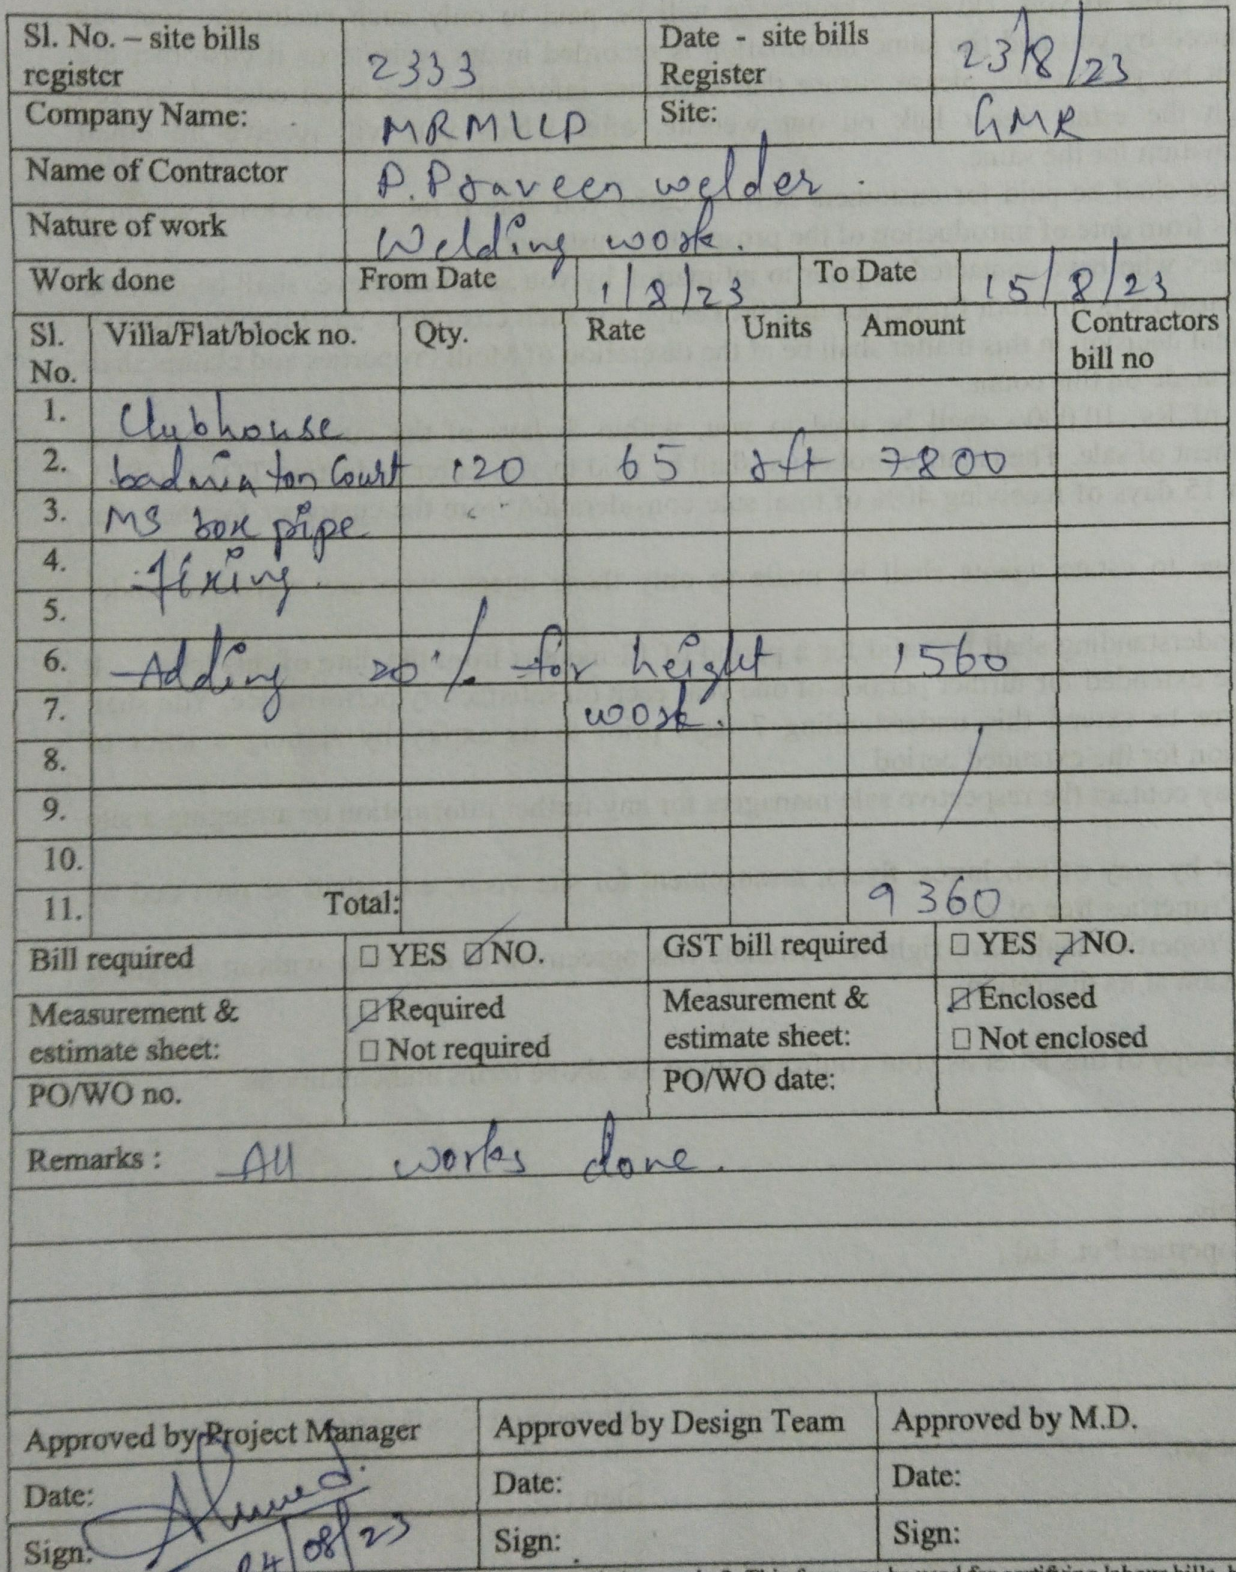 Sl. No. – site bills register 2333 Date - site bills Register 23/8/23
Company Name: MRMLLP Site: GMR
Name of Contractor P. Praveen welder.
Nature of work Welding work.
Work done From Date 1/8/23 To Date 15/8/23
Sl. No. Villa/Flat/block no. Qty. Rate Units Amount Contractors bill no
1. Clubhouse
2. badminton Court 120 65 sft 7800
3. MS box pipe
4. fixing
5.
6. Adding 20% for height 1560
7. work.
8.
9.
10.
11. Total: 9360
Bill required ☐ YES ☑ NO. GST bill required ☐ YES ☑ NO.
Measurement & estimate sheet: ☑ Required Measurement & estimate sheet: ☑ Enclosed
☐ Not required ☐ Not enclosed
PO/WO no. PO/WO date:
Remarks : All works done.
Approved by Project Manager Approved by Design Team Approved by M.D.
Date: Date: Date:
Sign: Ahmed. 24/08/23 Sign: Sign: